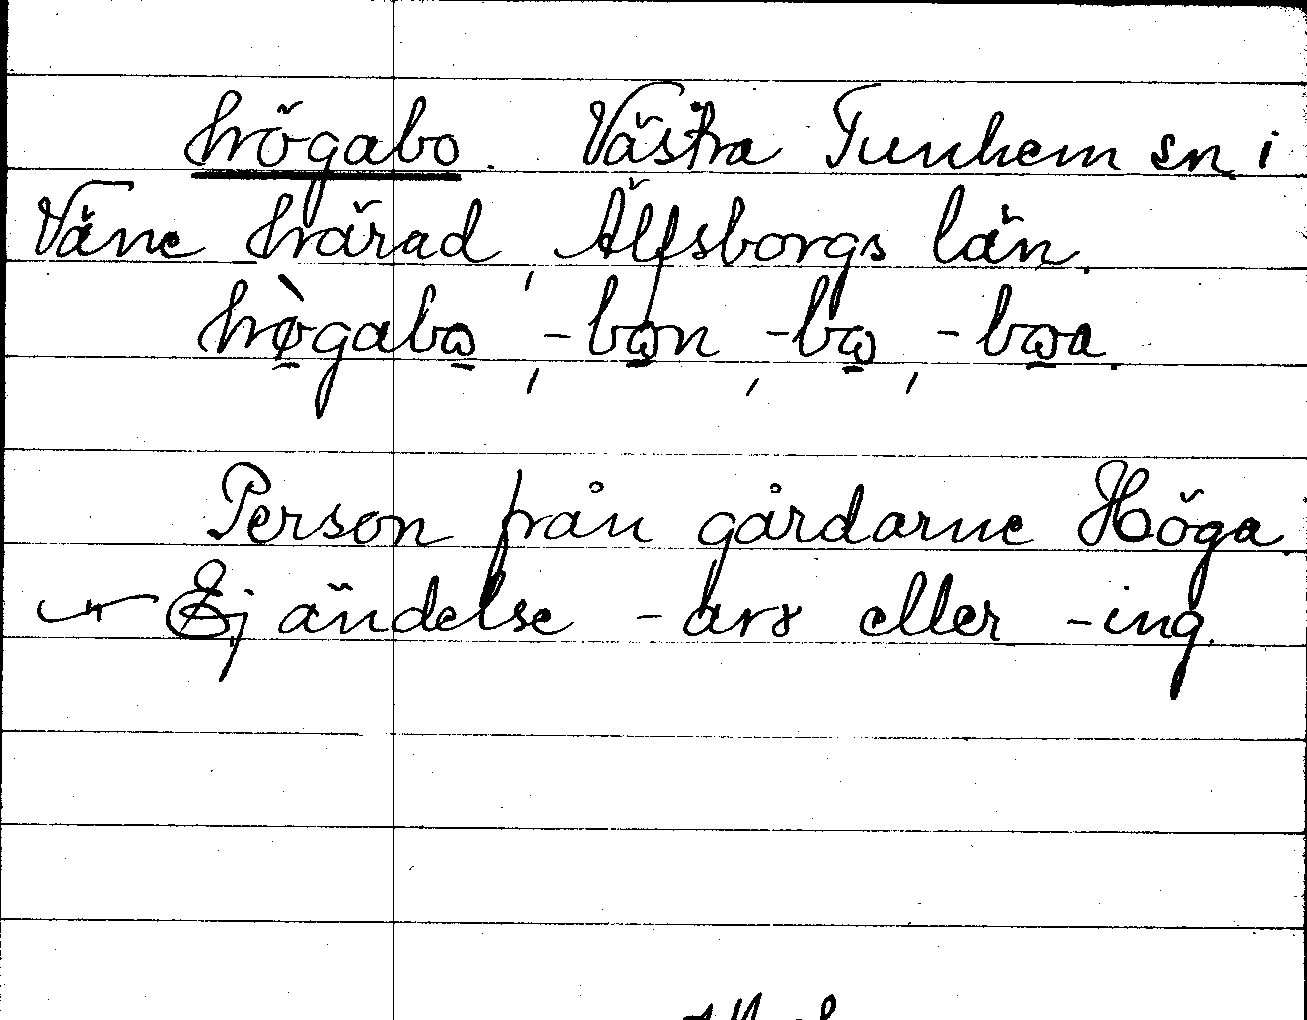 högabo. Västra Tunhem sn i
Väne härad, Älfsborgs län.
hø̀gabɷ, -bɷn, -bɷ, -bɷa.
Person från gårdarne Höga.
Ej ändelse -arɤ eller -ing.